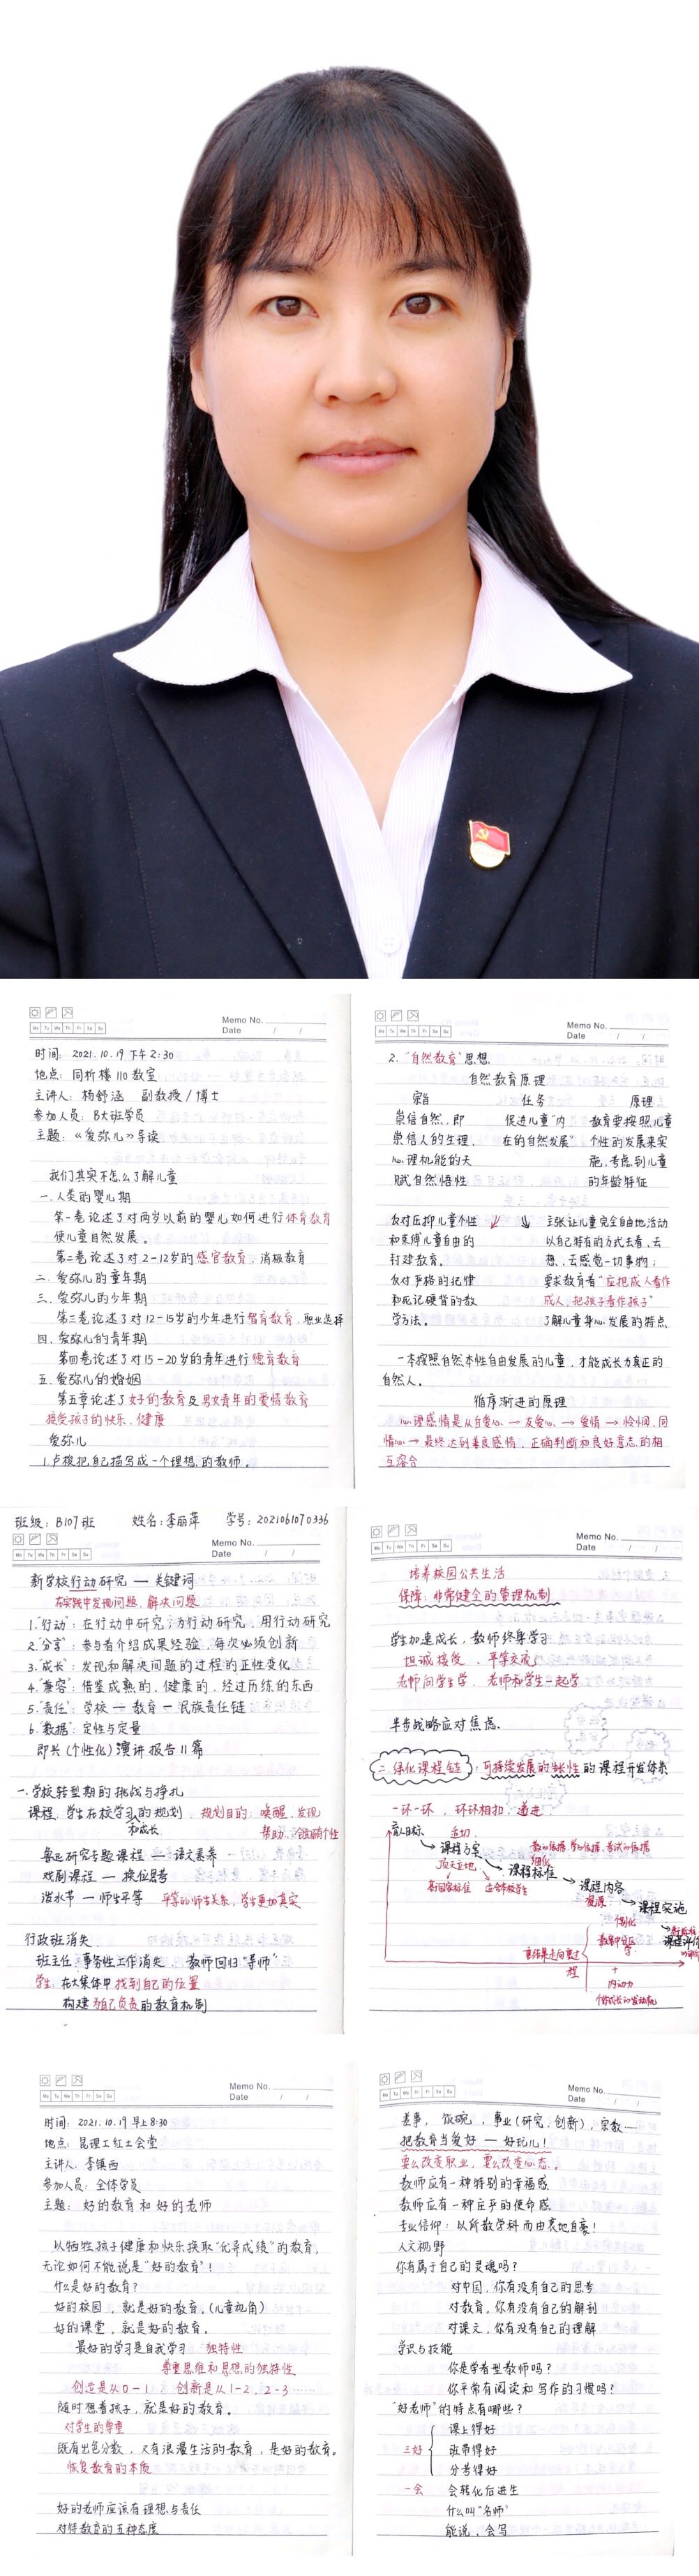 Memo No.
Date / /
Mo Tu We Th Fr Sa Su
时间：2021.10.19 下午2:30
地点：同析楼110教室
主讲人：杨舒涵 副教授/博士
参加人员：B大班学员
主题：《爱弥儿》导读
我们其实不怎么了解儿童
一.人类的婴儿期
第一卷论述了对两岁以前的婴儿如何进行体育教育
使儿童自然发展。
第二卷论述了对2-12岁的感官教育、消极教育
二.爱弥儿的童年期
三.爱弥儿的少年期
第三卷论述了对12-15岁的少年进行智育教育，职业选择
四.爱弥儿的青年期
第四卷论述了对15-20岁的青年进行德育教育
五.爱弥儿的婚姻
第五章论述了女好的教育及男女青年的爱情教育
接受孩子的快乐、健康
爱弥儿
1.卢梭把自己描写成一个理想的教师。
Memo No.
Date / /
Mo Tu We Th Fr Sa Su
2.“自然教育”思想
自然教育原理
宗旨 任务 原理
崇信自然，即 促进儿童“内 教育要按照儿童
崇信人的生理、 在的自然发展” 个性的发展来实
心理机能的天 施，考虑到儿童
赋自然悟性 的年龄特征
反对压抑儿童个性 主张让儿童完全自由地活动
和束缚儿童自由的 以自己特有的方式去看、去
封建教育。 想、去感觉一切事物；
反对严格的纪律 要求教育者“应把成人看作
和死记硬背的教 成人，把孩子看作孩子”
学方法。 了解儿童身心发展的特点
一本按照自然本性自由发展的儿童，才能成长为真正的
自然人。
循序渐进的原理
心理感情是从自爱心→友爱心→爱情→怜悯、同
情心→最终达到善良感情、正确判断和良好意志的相
互溶合
班级：B107班 姓名：李丽萍 学号：2021061070336
Memo No.
Date / /
Mo Tu We Th Fr Sa Su
新学校行动研究 — 关键词
在实践中发现问题、解决问题
1.“行动”：在行动中研究，为行动研究，用行动研究
2.“分享”：参与者介绍成果经验，每次必须创新
3.“成长”：发现和解决问题的过程的正性变化
4.“兼容”：借鉴成熟的，健康的，经过历练的东西
5.“责任”：学校 — 教育 — 民族责任链
6.“数据”：定性与定量
即兴(个性化)演讲 报告11篇
一.学校转型期的挑战与挣扎
课程，学生在校学习的规划 规划目的：唤醒、发现
和成长 帮助、
鲁迅研究专题课程 — 语文素养
戏剧课程 — 换位思考
泼水节 — 师生平等 平等的师生关系，学生更加真实
行政班消失
班主任、事务性工作消失 教师回归“导师”
学生：在大集体中找到自己的位置
构建为自己负责的教育机制
Memo No.
Date / /
Mo Tu We Th Fr Sa Su
培养校园公共生活
保障：非常健全的管理机制
学生加速成长，教师终身学习
坦诚接受、平等交流
老师向学生学，老师和学生一起学
半步战略应对焦虑.
二.绿化课程链：可持续发展的、的课程开发体系
一环一环，环环相扣，递进
育人目标 适切
课程方案 教的依据、学的依据、考试的依据
顶天立地 细化
课程标准
基于国家标准 适合本校学生
课程内容
资源
课程实施
个别化
课程评价
重结果走向重过
程
+
内动力
个体成长的发动机
Memo No.
Date / /
Mo Tu We Th Fr Sa Su
时间：2021.10.19 早上8:30
地点：昆理工红土会堂
主讲人：李镇西
参加人员：全体学员
主题：好的教育和好的老师
以牺牲孩子健康和快乐换取“优异成绩”的教育，
无论如何不能说是“好的教育”！
什么是好的教育？
好的校园，就是好的教育。(儿童视角)
好的课堂，就是好的教育。
最好的学习是自我学习 独特性
尊重思维和思想的独特性
创造是从0-1，创新是从1-2，2-3……
随时想着孩子，就是好的教育。
对学生的尊重
既有出色分数，又有浪漫生活的教育，是好的教育。
恢复教育的本质
好的老师应该有理想与责任
对待教育的五种态度
Memo No.
Date / /
Mo Tu We Th Fr Sa Su
差事，饭碗，事业(研究、创新)，宗教……
把教育当爱好 — 好玩儿！
要么改变职业，要么改变心态。
教师应有一种特别的幸福感
教师应有一种在乎的使命感
专业信仰：以所教学科而由衷地自豪！
人文视野
你有属于自己的灵魂吗？
对中国，你有没有自己的思考
对教育，你有没有自己的解剖
对课文，你有没有自己的理解
学识与技能
你是学者型教师吗？
你平常有阅读和写作的习惯吗？
“好老师”的特点有哪些？
课上得好
三好 班带得好
分考得好
一会 会转化后进生
什么叫“名师”
能说、会写